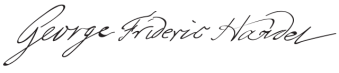 George Frideric Handel